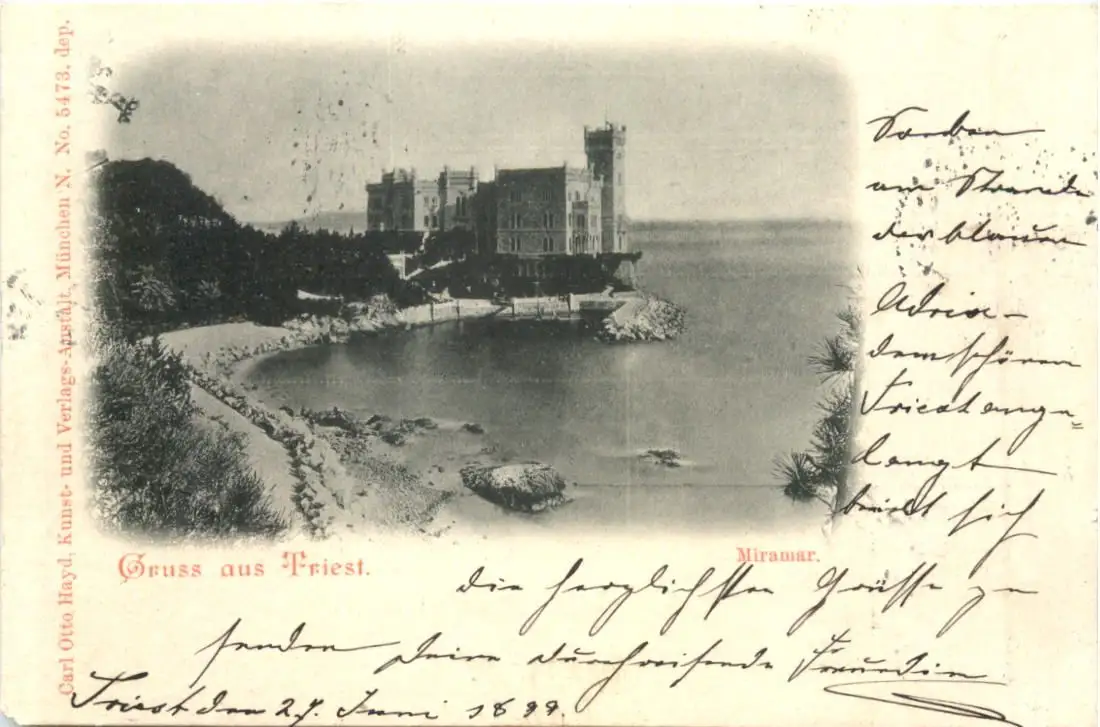 Carl Otto Hayd, Kunst- und Verlags-Anstalt, München N. No. 5473. dep.
Gruss aus Triest.
Miramar.
Soeben
am Strande
der blauen
Adria –
dem schönen
Triest ange=
langt
beeilt sich
die herzlichsten Grüße zu
senden Deine durchreisende Freundin
Triest den 27. Juni 1899.